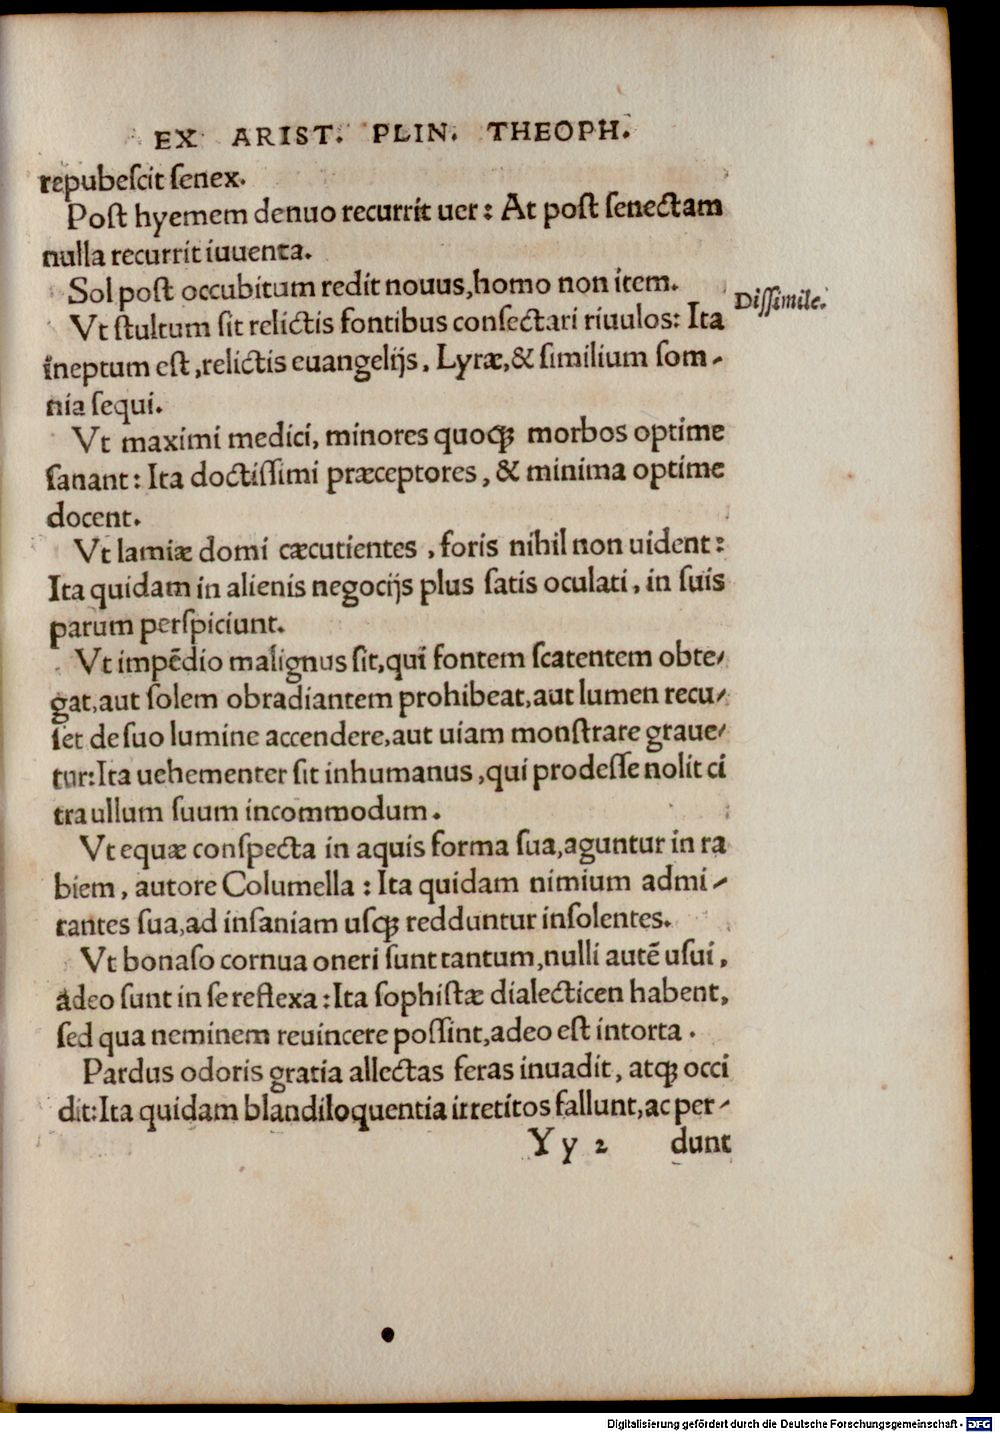 EX ARIST. PLIN. THEOPH.
repubeſcit ſenex.
Poſt hyemem denuo recurrit uer: At poſt ſenectam
nulla recurrit iuuenta.
Sol poſt occubitum redit nouus,homo non item.
Dißimile.
Vt ſtultum ſit relictis fontibus conſectari riuulos: Ita
ineptum eſt,relictis euangelijs, Lyræ,& ſimilium ſom-
nia ſequi.
Vt maximi medici, minores quoqꝫ morbos optime
ſanant: Ita doctiſſimi præceptores, & minima optime
docent.
Vt lamiæ domi cæcutientes, foris nihil non uident:
Ita quidam in alienis negocijs plus ſatis oculati, in ſuis
parum perſpiciunt.
Vt impēdio malignus ſit,qui fontem ſcatentem obte-
gat,aut ſolem obradiantem prohibeat,aut lumen recu-
ſet de ſuo lumine accendere,aut uiam monſtrare graue-
tur:Ita uehementer ſit inhumanus,qui prodeſſe nolit ci
tra ullum ſuum incommodum.
Vt equæ conſpecta in aquis forma ſua,aguntur in ra
biem, autore Columella: Ita quidam nimium admi-
rantes ſua,ad inſaniam uſqꝫ redduntur inſolentes.
Vt bonaſo cornua oneri ſunt tantum,nulli autē uſui,
adeo ſunt in ſe reflexa: Ita ſophiſtæ dialecticen habent,
ſed qua neminem reuincere poſſint,adeo eſt intorta.
Pardus odoris gratia allectas feras inuadit, atqꝫ occi
dit:Ita quidam blandiloquentia irretitos fallunt,ac per-
Y y 2 dunt
Digitalisierung gefördert durch die Deutsche Forschungsgemeinschaft - DFG